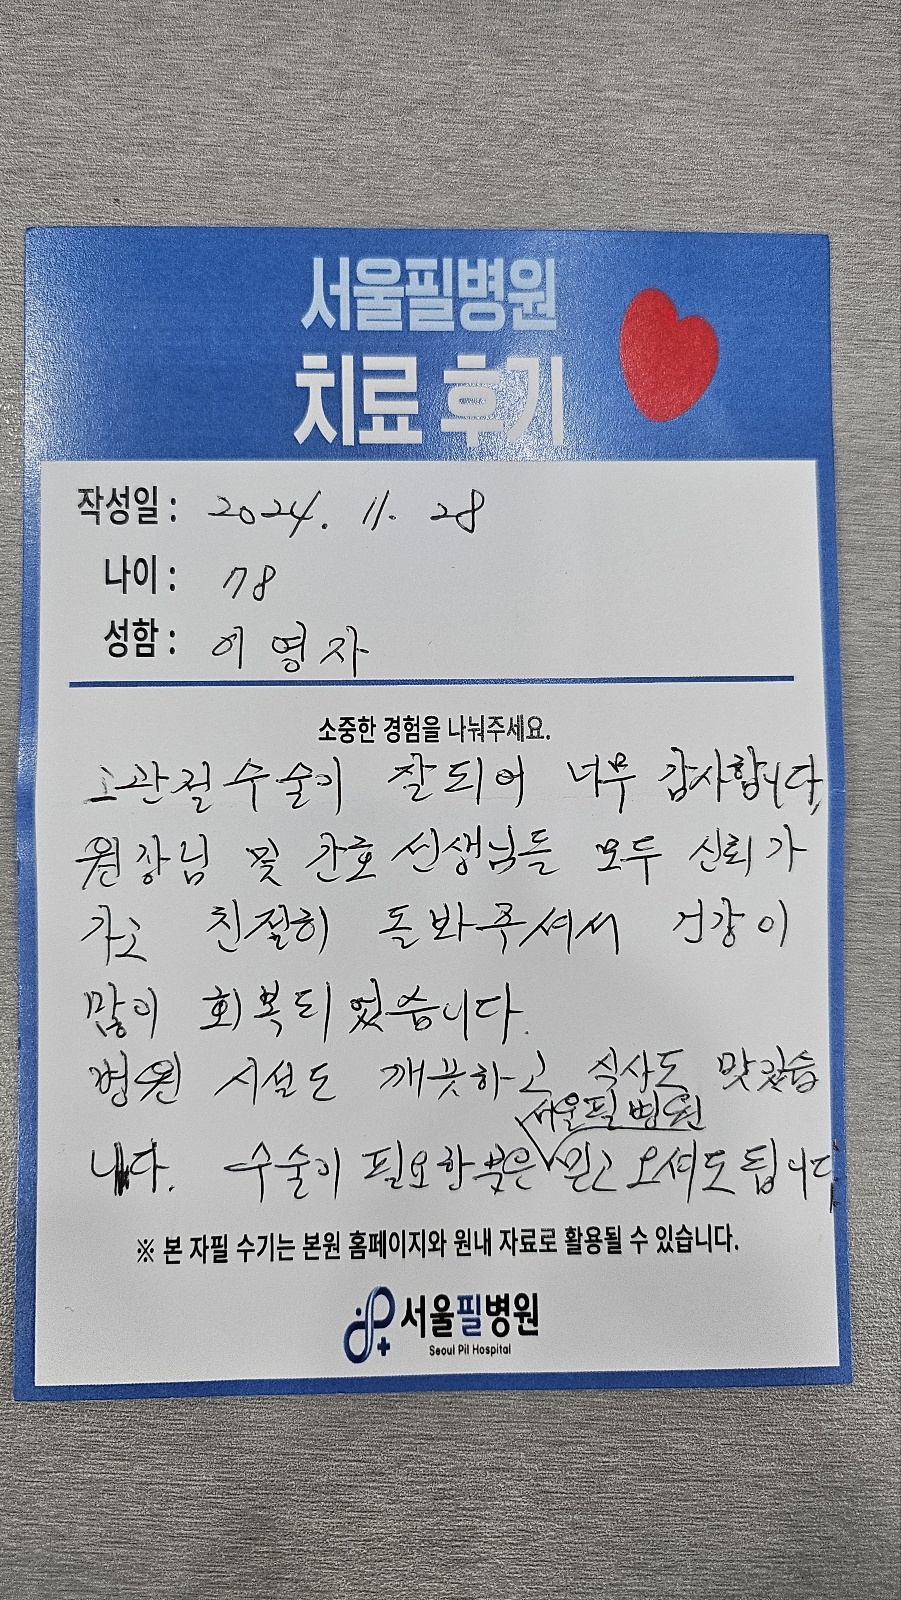 서울필병원
치료 후기
작성일 : 2024. 11. 28
나이 : 78
성함 : 이영자
소중한 경험을 나눠주세요.
고관절수술이 잘되어 너무 감사합니다,
원장님 및 간호 선생님들 모두 신뢰가
가고 친절히 돌봐주셔서 건강이
많이 회복되었습니다.
병원 시설도 깨끗하고 식사도 맛있습
서울필병원
니다. 수술이 필요한 분은 믿고 오셔도 됩니다
※ 본 자필 수기는 본원 홈페이지와 원내 자료로 활용될 수 있습니다.
서울필병원
Seoul Pil Hospital